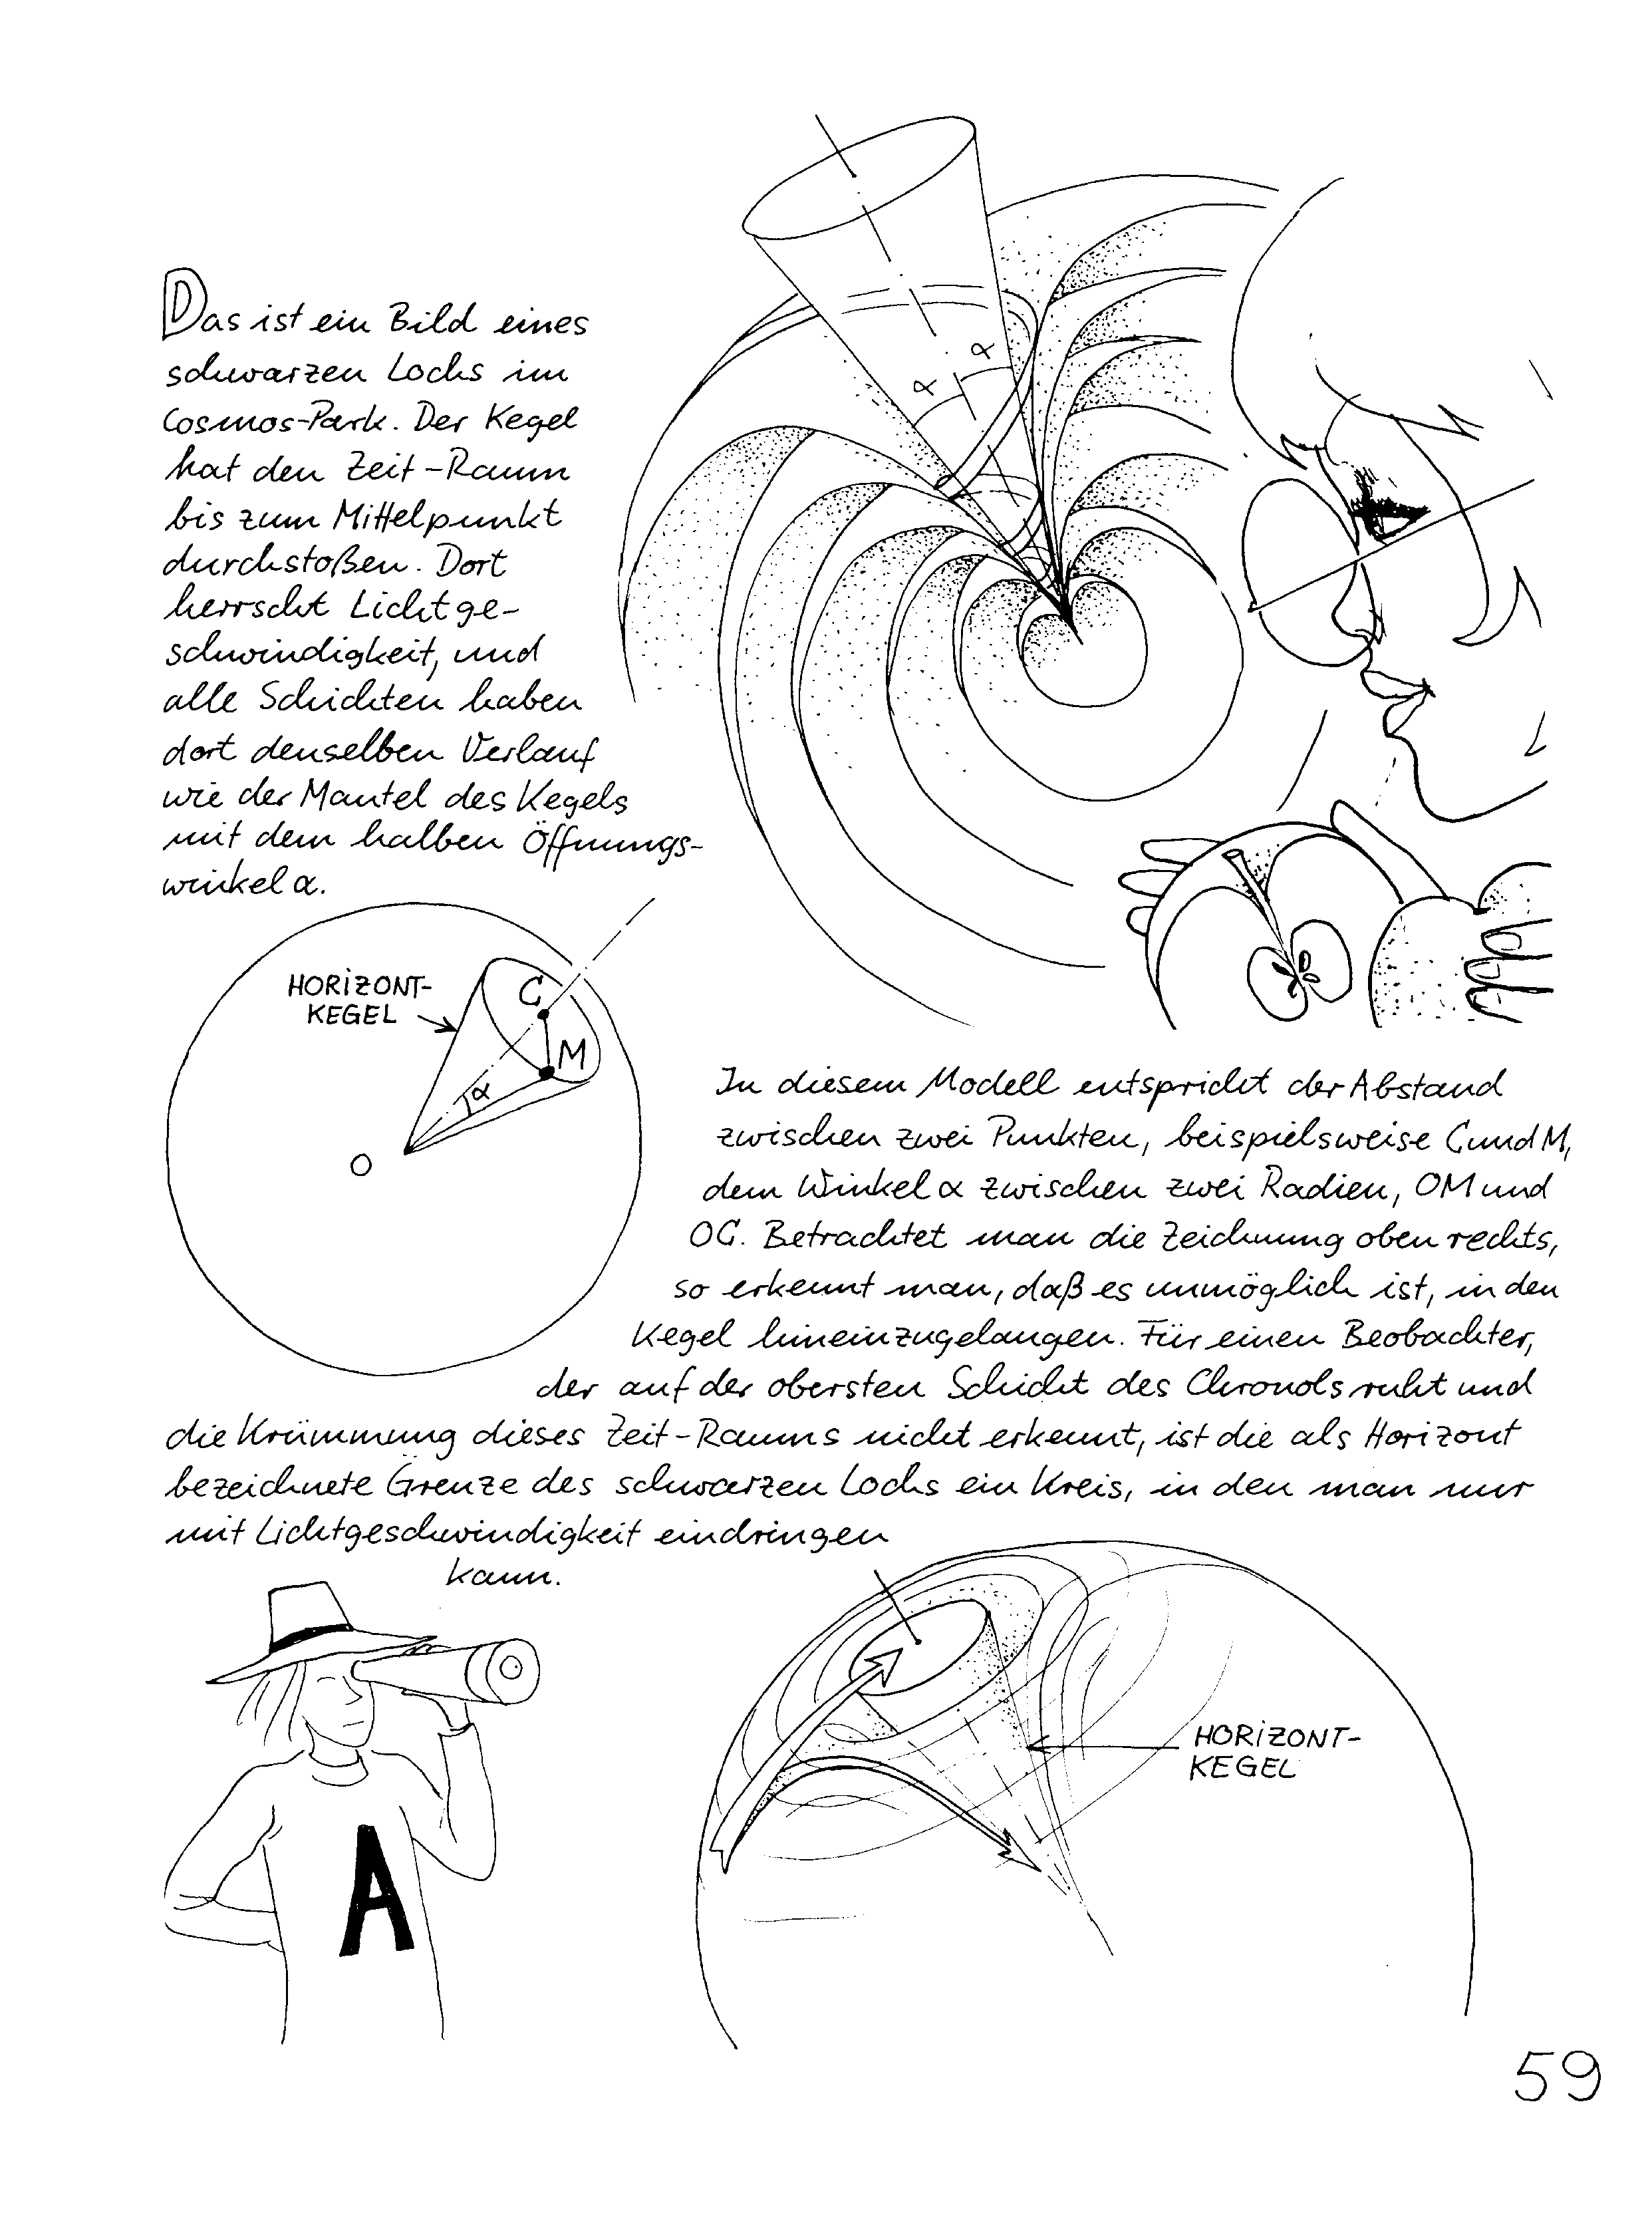 Das ist ein Bild eines
schwarzen Lochs im
Cosmos-Park. Der Kegel
hat den Zeit-Raum
bis zum Mittelpunkt
durchstoßen. Dort
herrscht Lichtge-
schwindigkeit, und
alle Schichten haben
dort denselben Verlauf
wie der Mantel des Kegels
mit dem halben Öffnungs-
winkel α.
α
α
HORIZONT-
KEGEL
C
M
α
O
In diesem Modell entspricht der Abstand
zwischen zwei Punkten, beispielsweise C und M,
dem Winkel α zwischen zwei Radien, OM und
OC. Betrachtet man die Zeichnung oben rechts,
so erkennt man, daß es unmöglich ist, in den
Kegel hineinzugelangen. Für einen Beobachter,
der auf der obersten Schicht des Chronols ruht und
die Krümmung dieses Zeit-Raums nicht erkennt, ist die als Horizont
bezeichnete Grenze des schwarzen Lochs ein Kreis, in den man nur
mit Lichtgeschwindigkeit eindringen
kann.
A
HORIZONT-
KEGEL
59